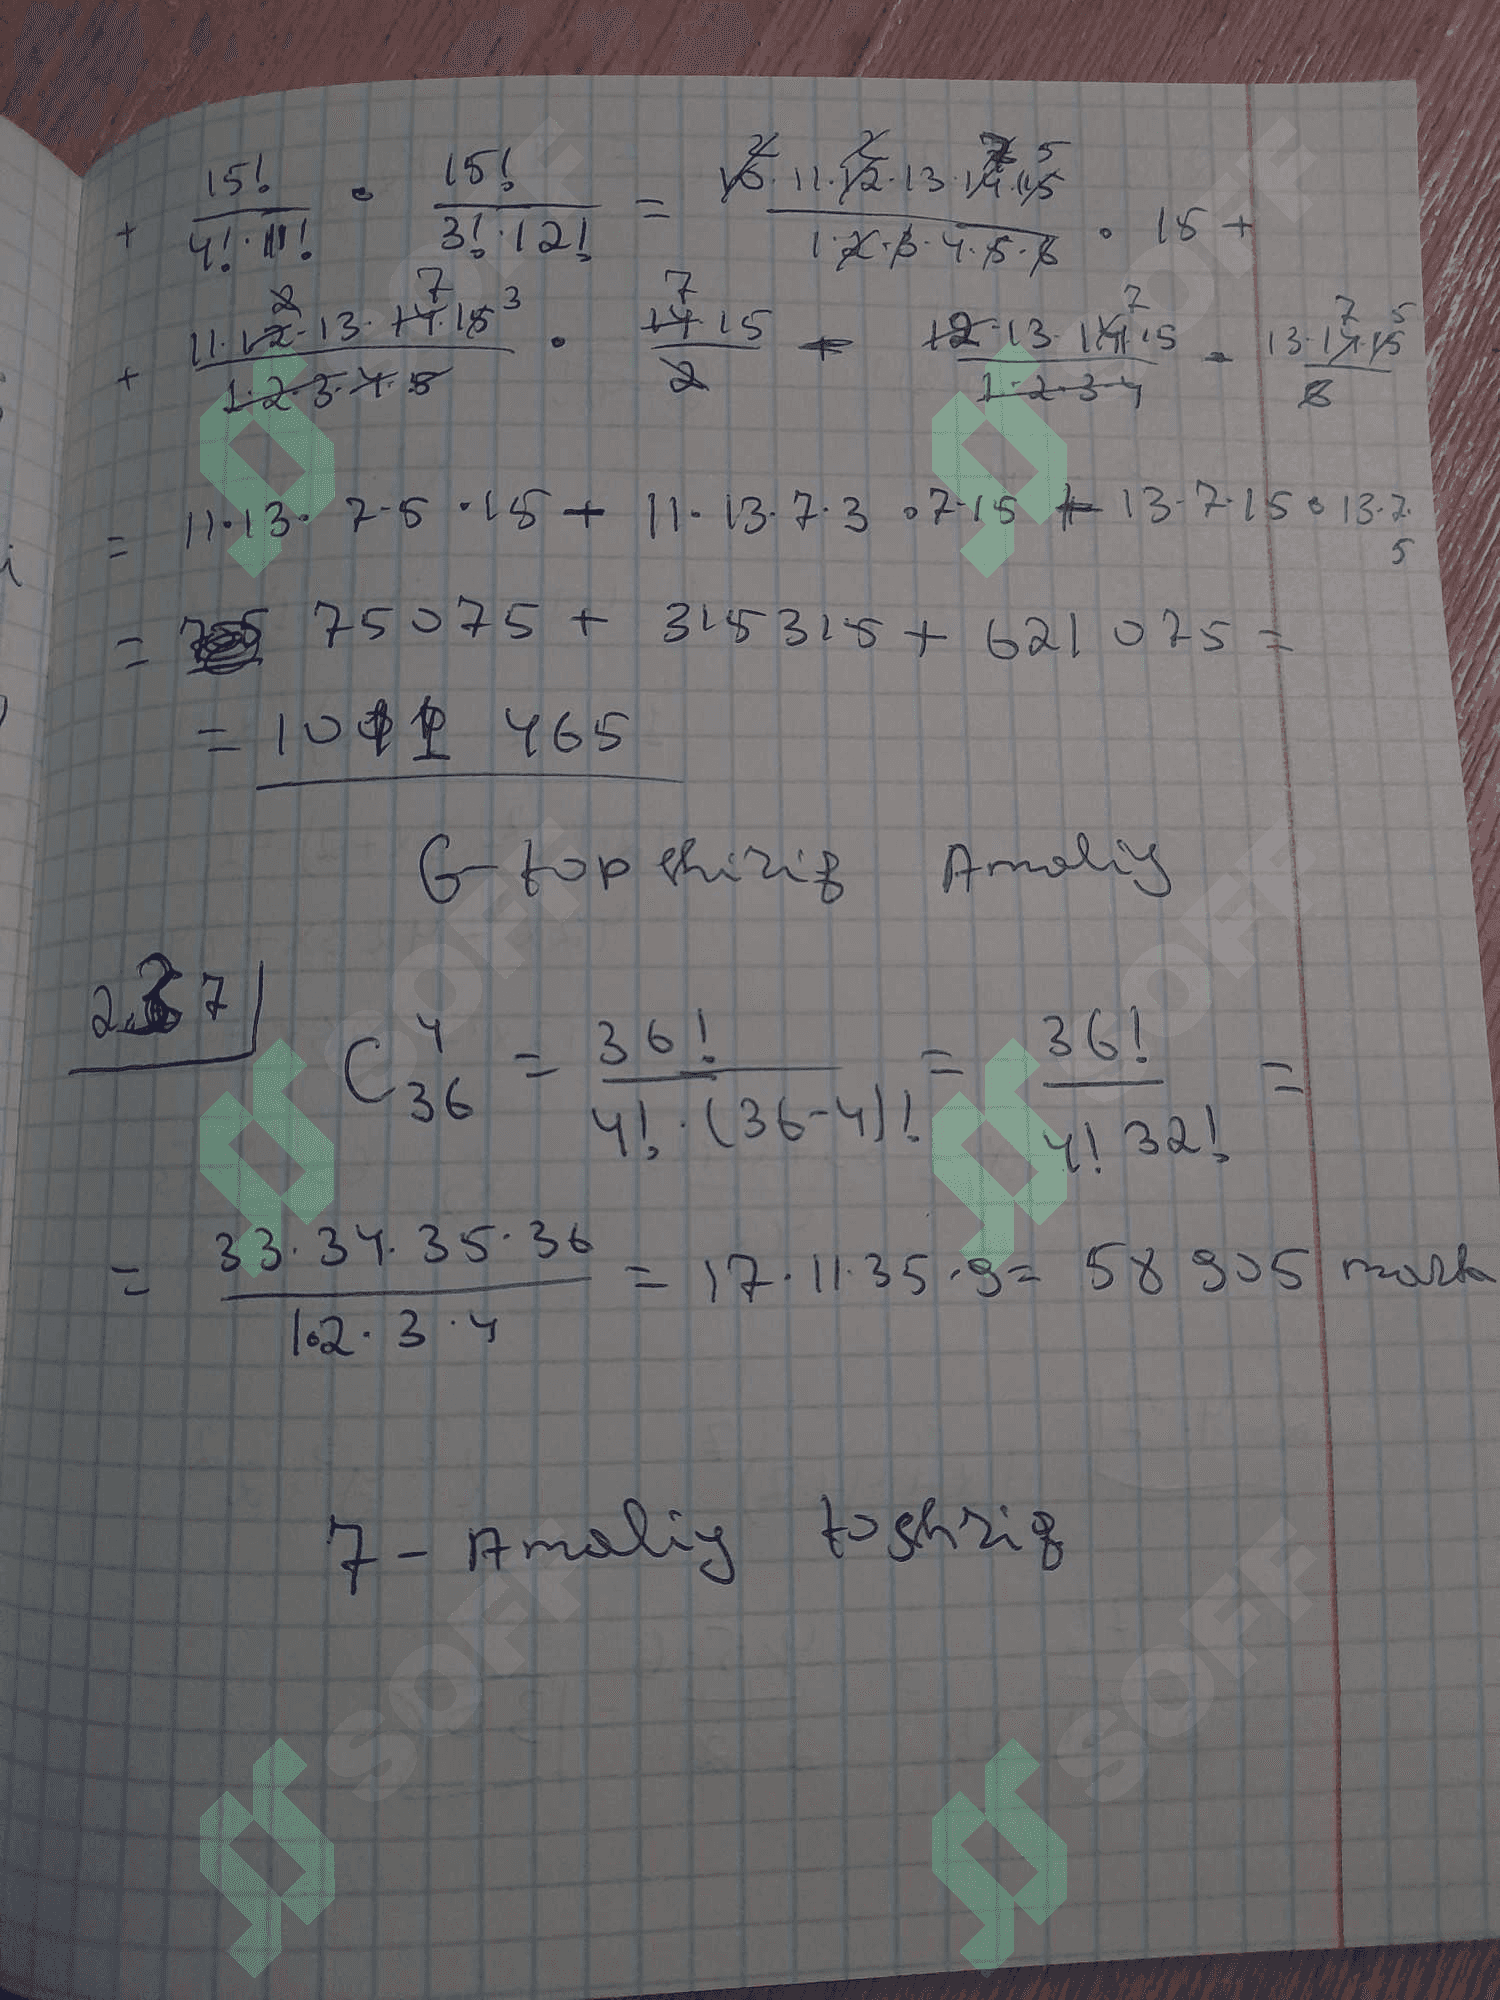 + 15!/(4!·11!) · 15!/(3!·12!) = (10·11·12·13·14·15)/(1·2·3·4·5·6) · 15 +
+ (11·12·13·14·15)/(1·2·3·4·5) · (14·15)/2 + (12·13·14·15)/(1·2·3·4) · (13·14·15)/6
= 11·13·7·5·15 + 11·13·7·3·7·15 + 13·7·15·13·7·
5
= 75075 + 315315 + 621075 =
= 1011 465
6-topshiriq Amaliy
2.37
C₃₆⁴ = 36!/(4!·(36-4)!) = 36!/(4! 32!) =
= (33·34·35·36)/(1·2·3·4) = 17·11·35·9 = 58 905 marta
7 - Amaliy toshriq
SOFF
SOFF
SOFF
SOFF
SOFF
SOFF